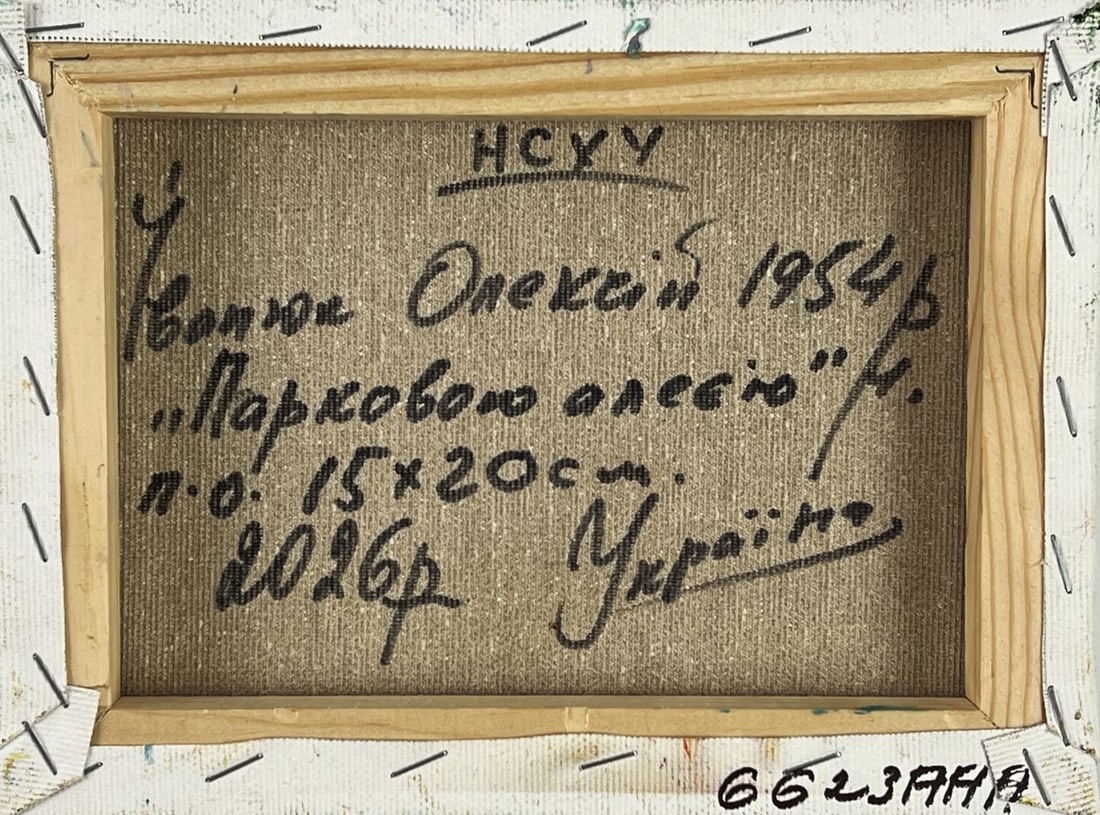 НСХУ
Іванюк Олексій 1954 р/н.
„Парковою алеєю"
п.о. 15х20см.
2026р Україна
6623АНА